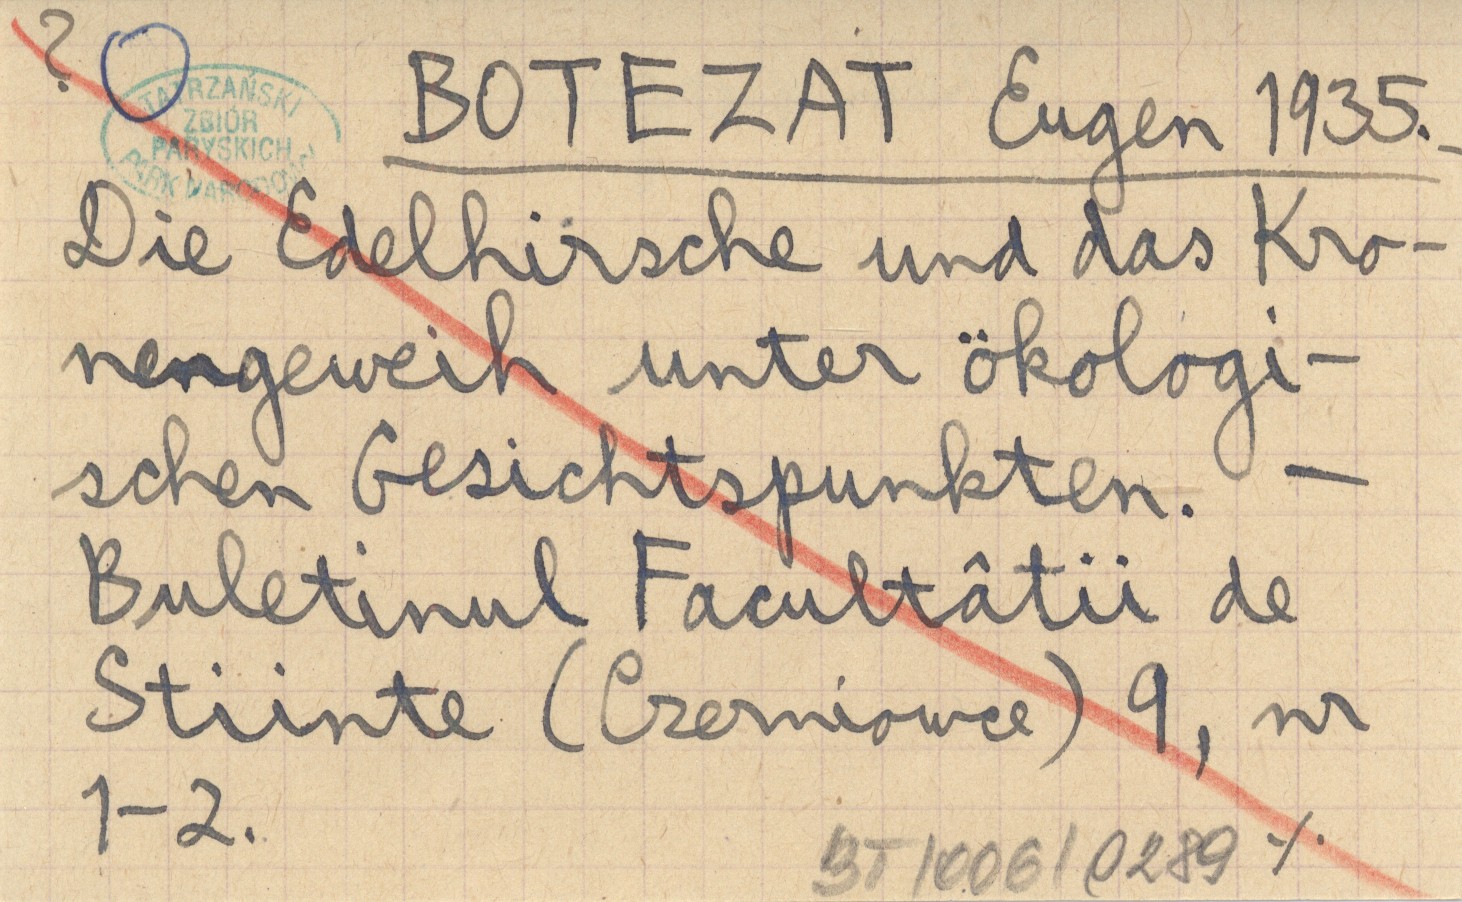 ?
TATRZAŃSKI
ZBIÓR
PARYSKICH
PARK NARODOWY
BOTEZAT Eugen 1935.
Die Edelhirsche und das Kro-
nengeweih unter ökologi-
schen Gesichtspunkten. —
Buletinul Facultâtii de
Stiinte (Czerniowce) 9, nr
1-2.
BT/006/0289 ./.